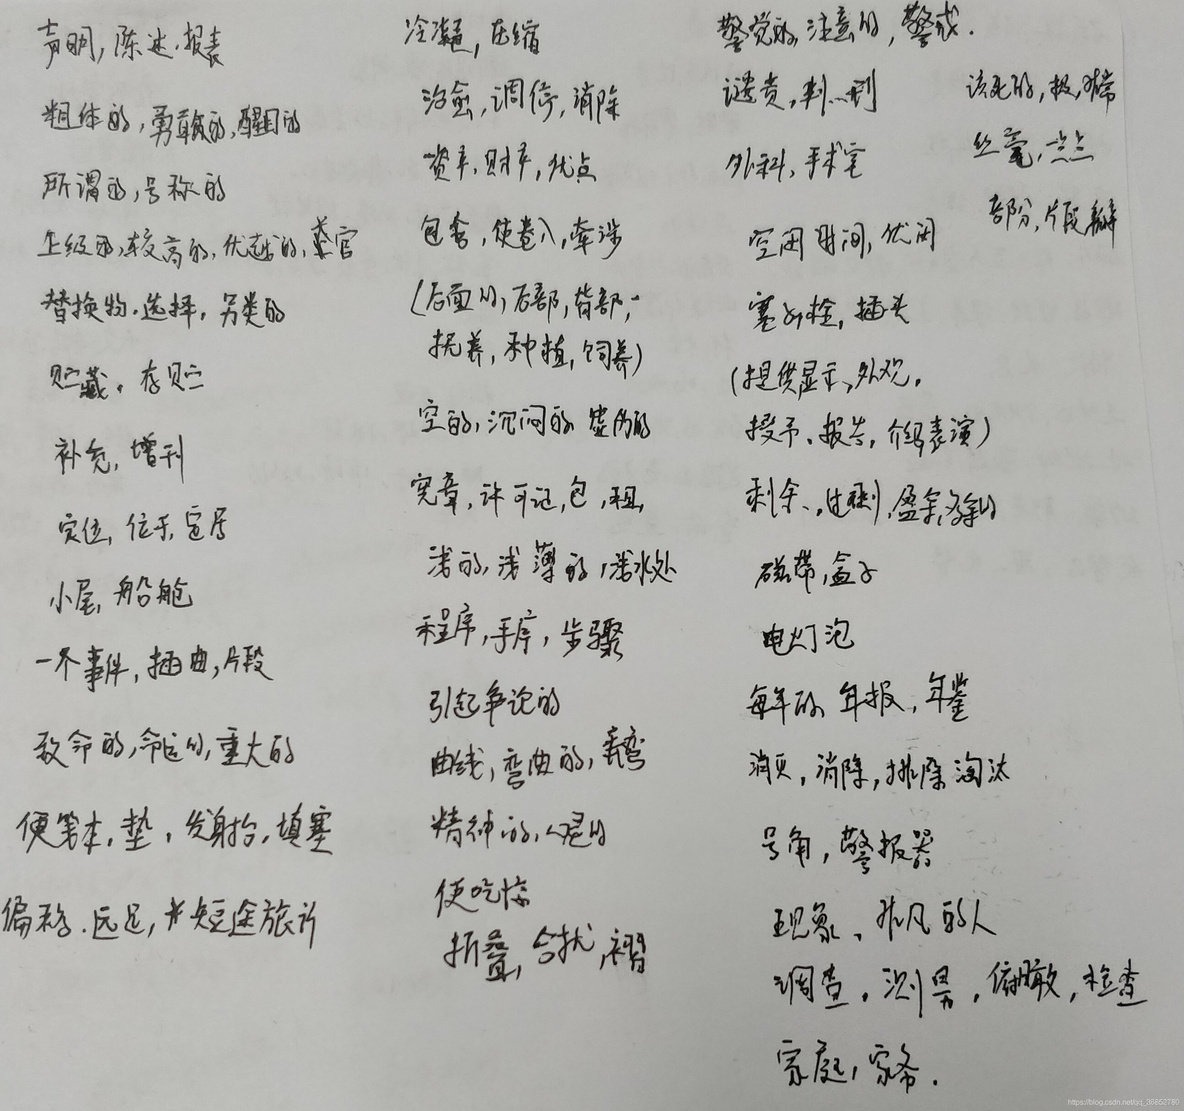 声明，陈述，报表
粗体的，勇敢的，醒目的
所谓的，号称的
上级的，较高的，优越的，
替换物，选择，另类的
贮藏，存贮
补充，增刊
定位，位于，定居
小屋，船舱
一个事件，插曲，片段
致命的，命运的，重大的
便笺本，垫，发射台，填塞
远足，短途旅行
冷凝，压缩
治愈，调停，消除
资本，财产，优点
包含，使卷入，牵涉
(后面的，后部，背部，
抚养，种植，饲养)
空的，沉闷的
宪章，许可证，包，租
浅的，浅薄的，浅水处
程序，手序，步骤
引起争论的
曲线，弯曲的，弄弯
精神的，心理的
使吃惊
折叠，合拢，褶
警觉的，注意的，警戒.
谴责，判..刑
外科，手术室
空闲时间，优闲
塞子栓，插头
(提供显示，外观，
授予、报告，介绍表演)
剩余，过剩，盈余，多余的
磁带，盒子
电灯泡
每年的，年报，年鉴
消灭，消除，排除淘汰
号角，警报器
现象，非凡的人
调查，测量，俯瞰，检查
家庭，家务.
该死的，极，非常
丝毫，一点点
部分，片段，瓣
https://blog.csdn.net/qq_36652780